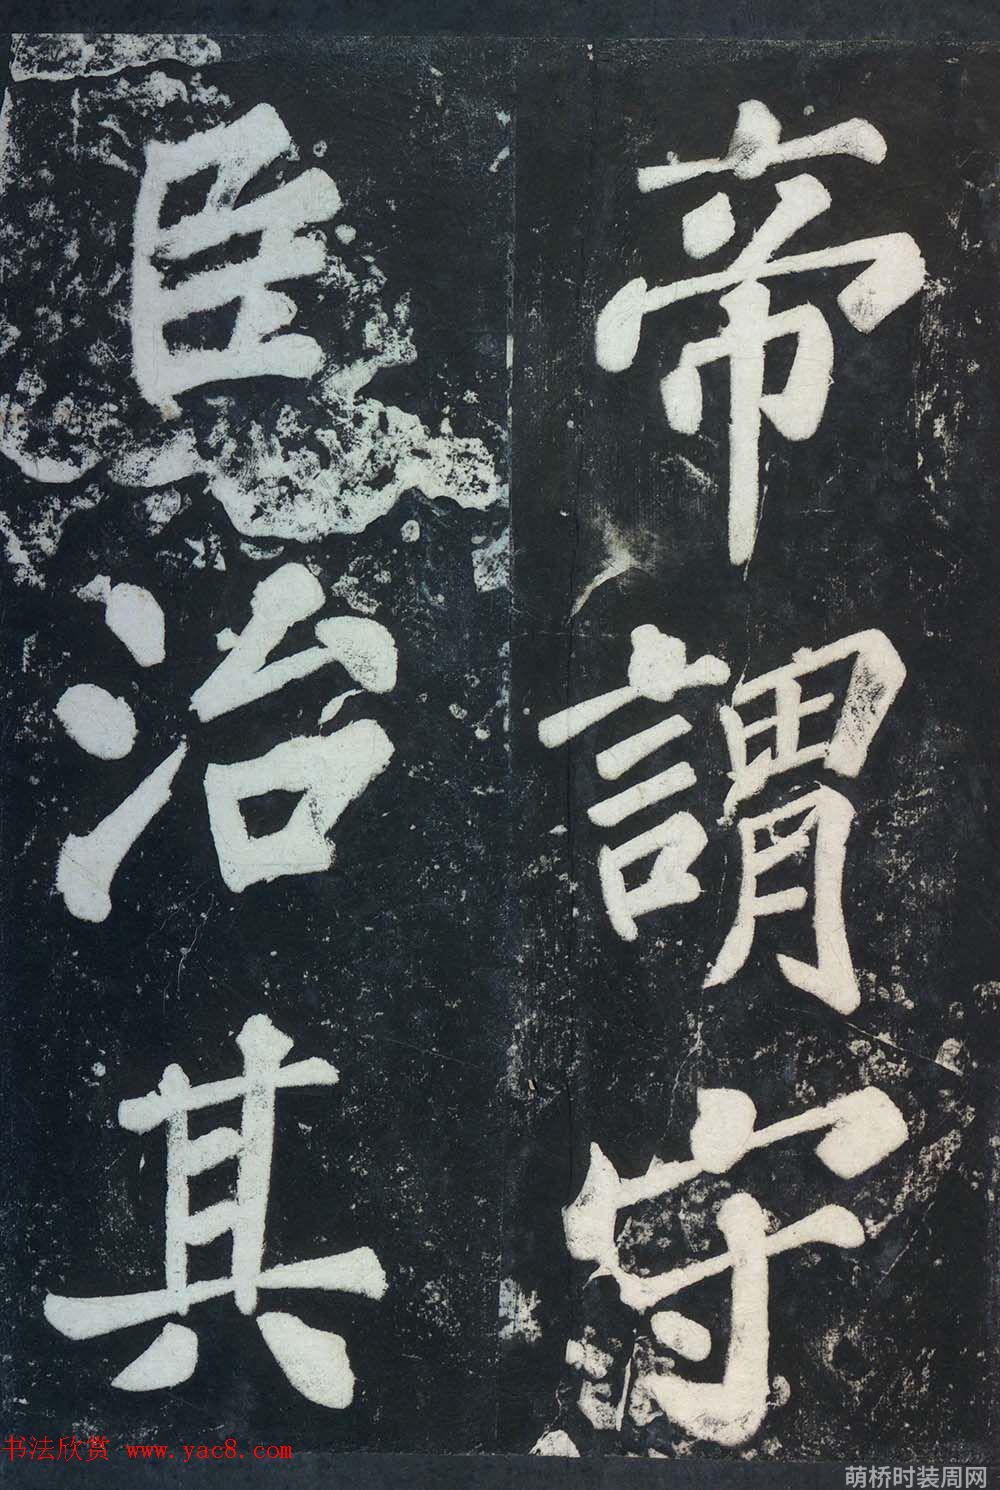 帝謂守
臣治其
书法欣赏 www.yac8.com
萌桥时装周网